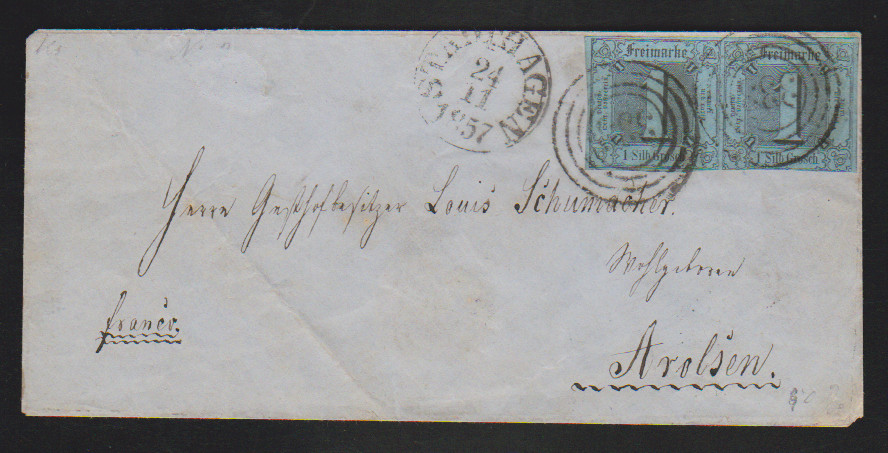 STADTHAGEN
24
11
1857
Freimarke
1
1 Silb. Grosch
Freimarke
1
1 Silb. Grosch
Herrn Gasthofbesitzer Louis Schumacher.
Wohlgeboren
franco.
Arolsen.